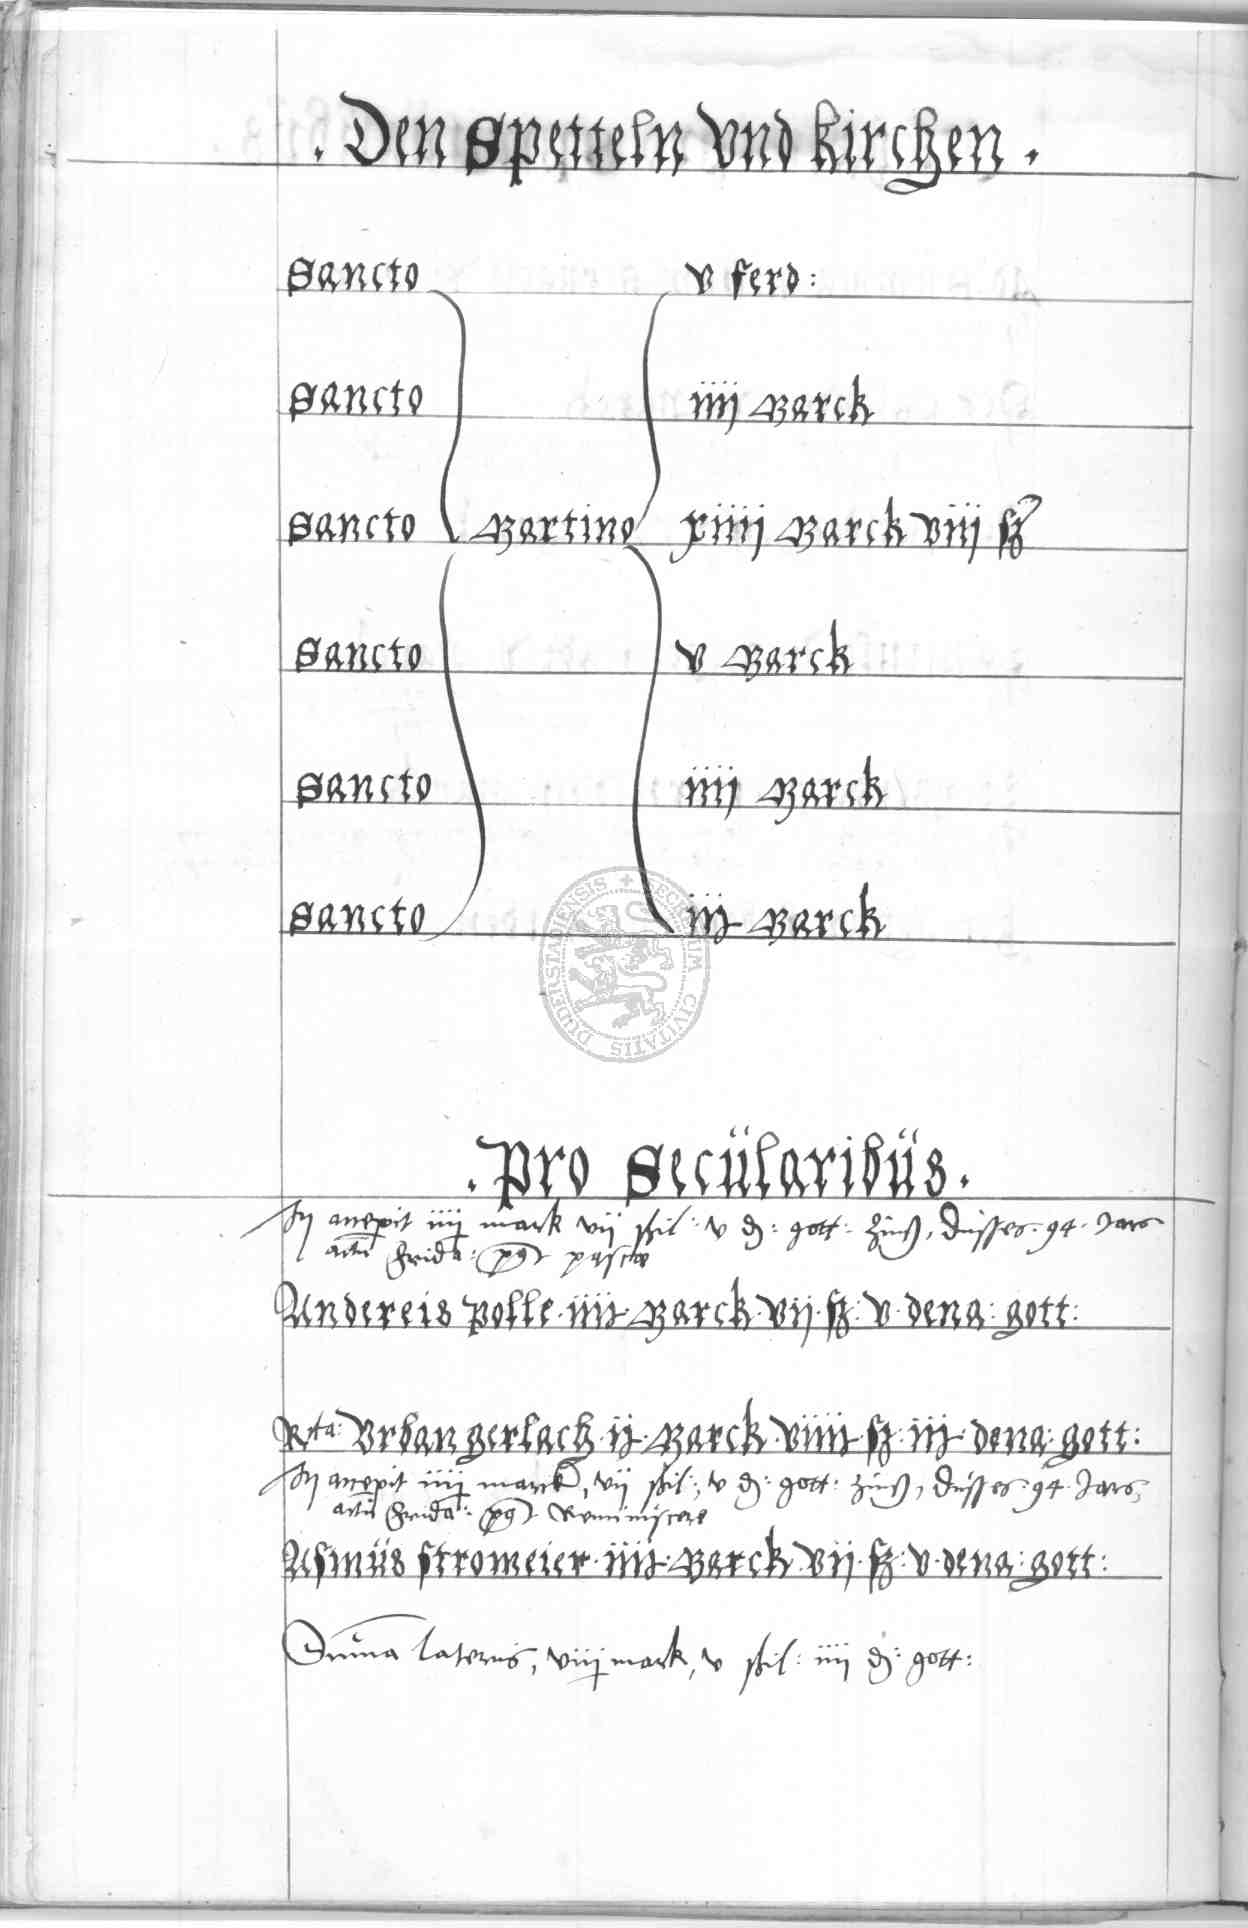 . Den Spetteln vnd kirchen .
Sancto v ferd:
Sancto iiij Marck
Sancto Martino xiiij Marck viij ß
Sancto v Marck
Sancto iiij Marck
Sancto iij Marck
SECRETUM CIVITATIS DUDERSTADIENSIS
. Pro Secülaribüs .
accepit iiij mark vij ßil: v d: gott: Zinß, dusses 94 Jars
frida: pascæ
Andereis Polle iiij Marck vij ß v dena: gott:
Rta: Vrban gerlach ij Marck viiij ß iij dena: gott:
accepit iiij marck, vij ßil:, v d: gott: Zinß, dusses 94 Jars,
frida: Reminiscere
Asmüs stromeier iiij Marck vij ß v dena: gott:
Suma lateris, viiij mark, v ßil: iiij d: gott: